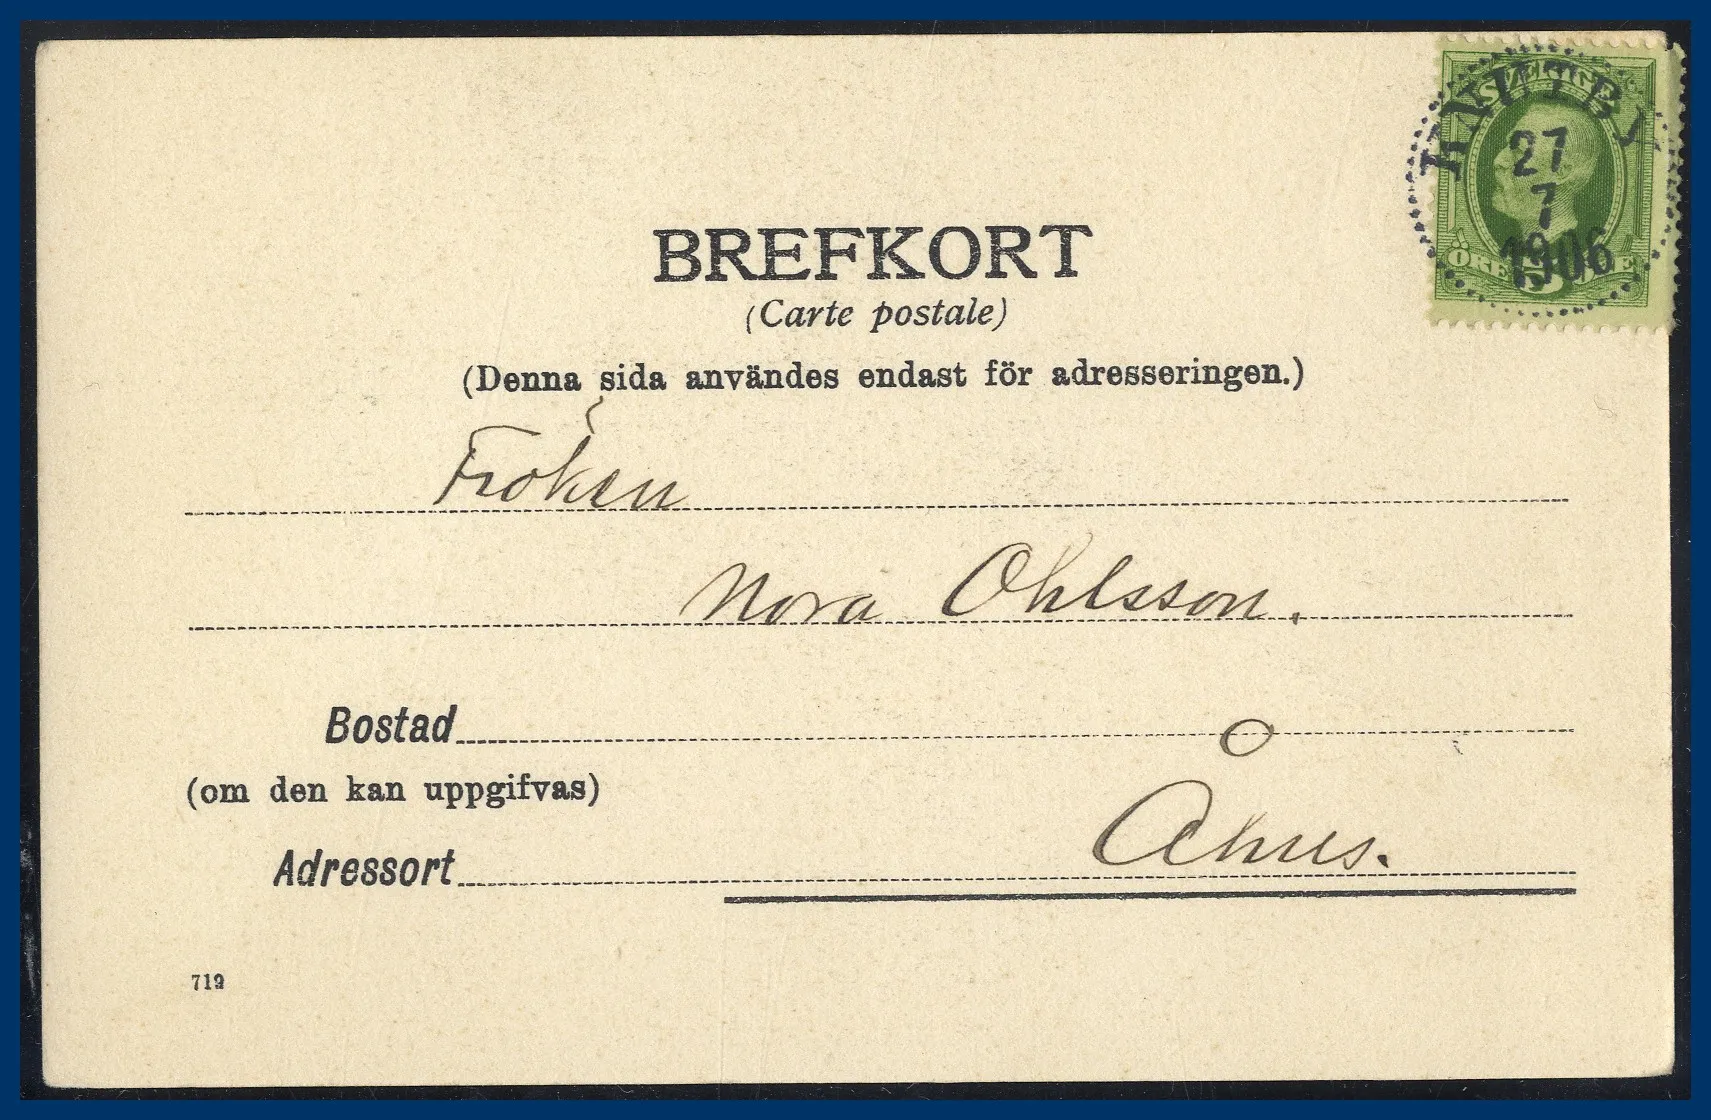 KNUTBY
27
7
1906
SVERIGE
ÖRE 5 ÖRE
BREFKORT
(Carte postale)
(Denna sida användes endast för adresseringen.)
Fröken
Nora Ohlsson.
Bostad
(om den kan uppgifvas)
Åhus.
Adressort
719